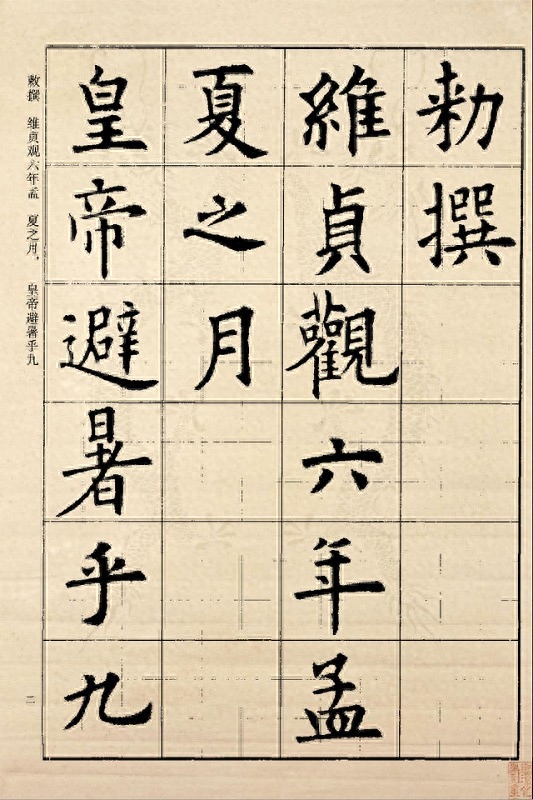 勅撰
維貞觀六年孟
夏之月
皇帝避暑乎九
敕撰 维贞观六年孟 夏之月， 皇帝避暑乎九
二